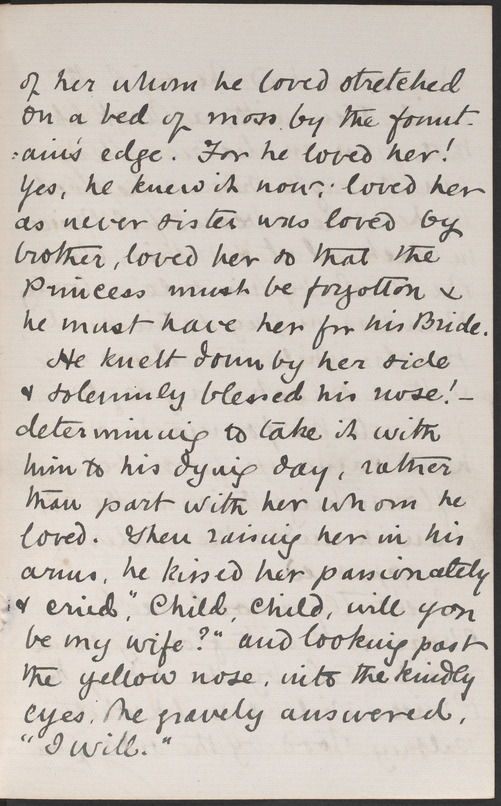 of her whom he loved stretched
on a bed of moss by the fount-
:ain's edge. For he loved her!
Yes, he knew it now; loved her
as never sister was loved by
brother, loved her so that the
Princess must be forgotton &
he must have her for his Bride.
He knelt down by her side
& solemnly blessed his nose! -
determining to take it with
him to his dying day, rather
than part with her whom he
loved. Then raising her in his
arms, he kissed her passionately
& cried", Child, child, will you
be my wife?" and looking past
the yellow nose, into the kindly
eyes, she gravely answered,
"I will."